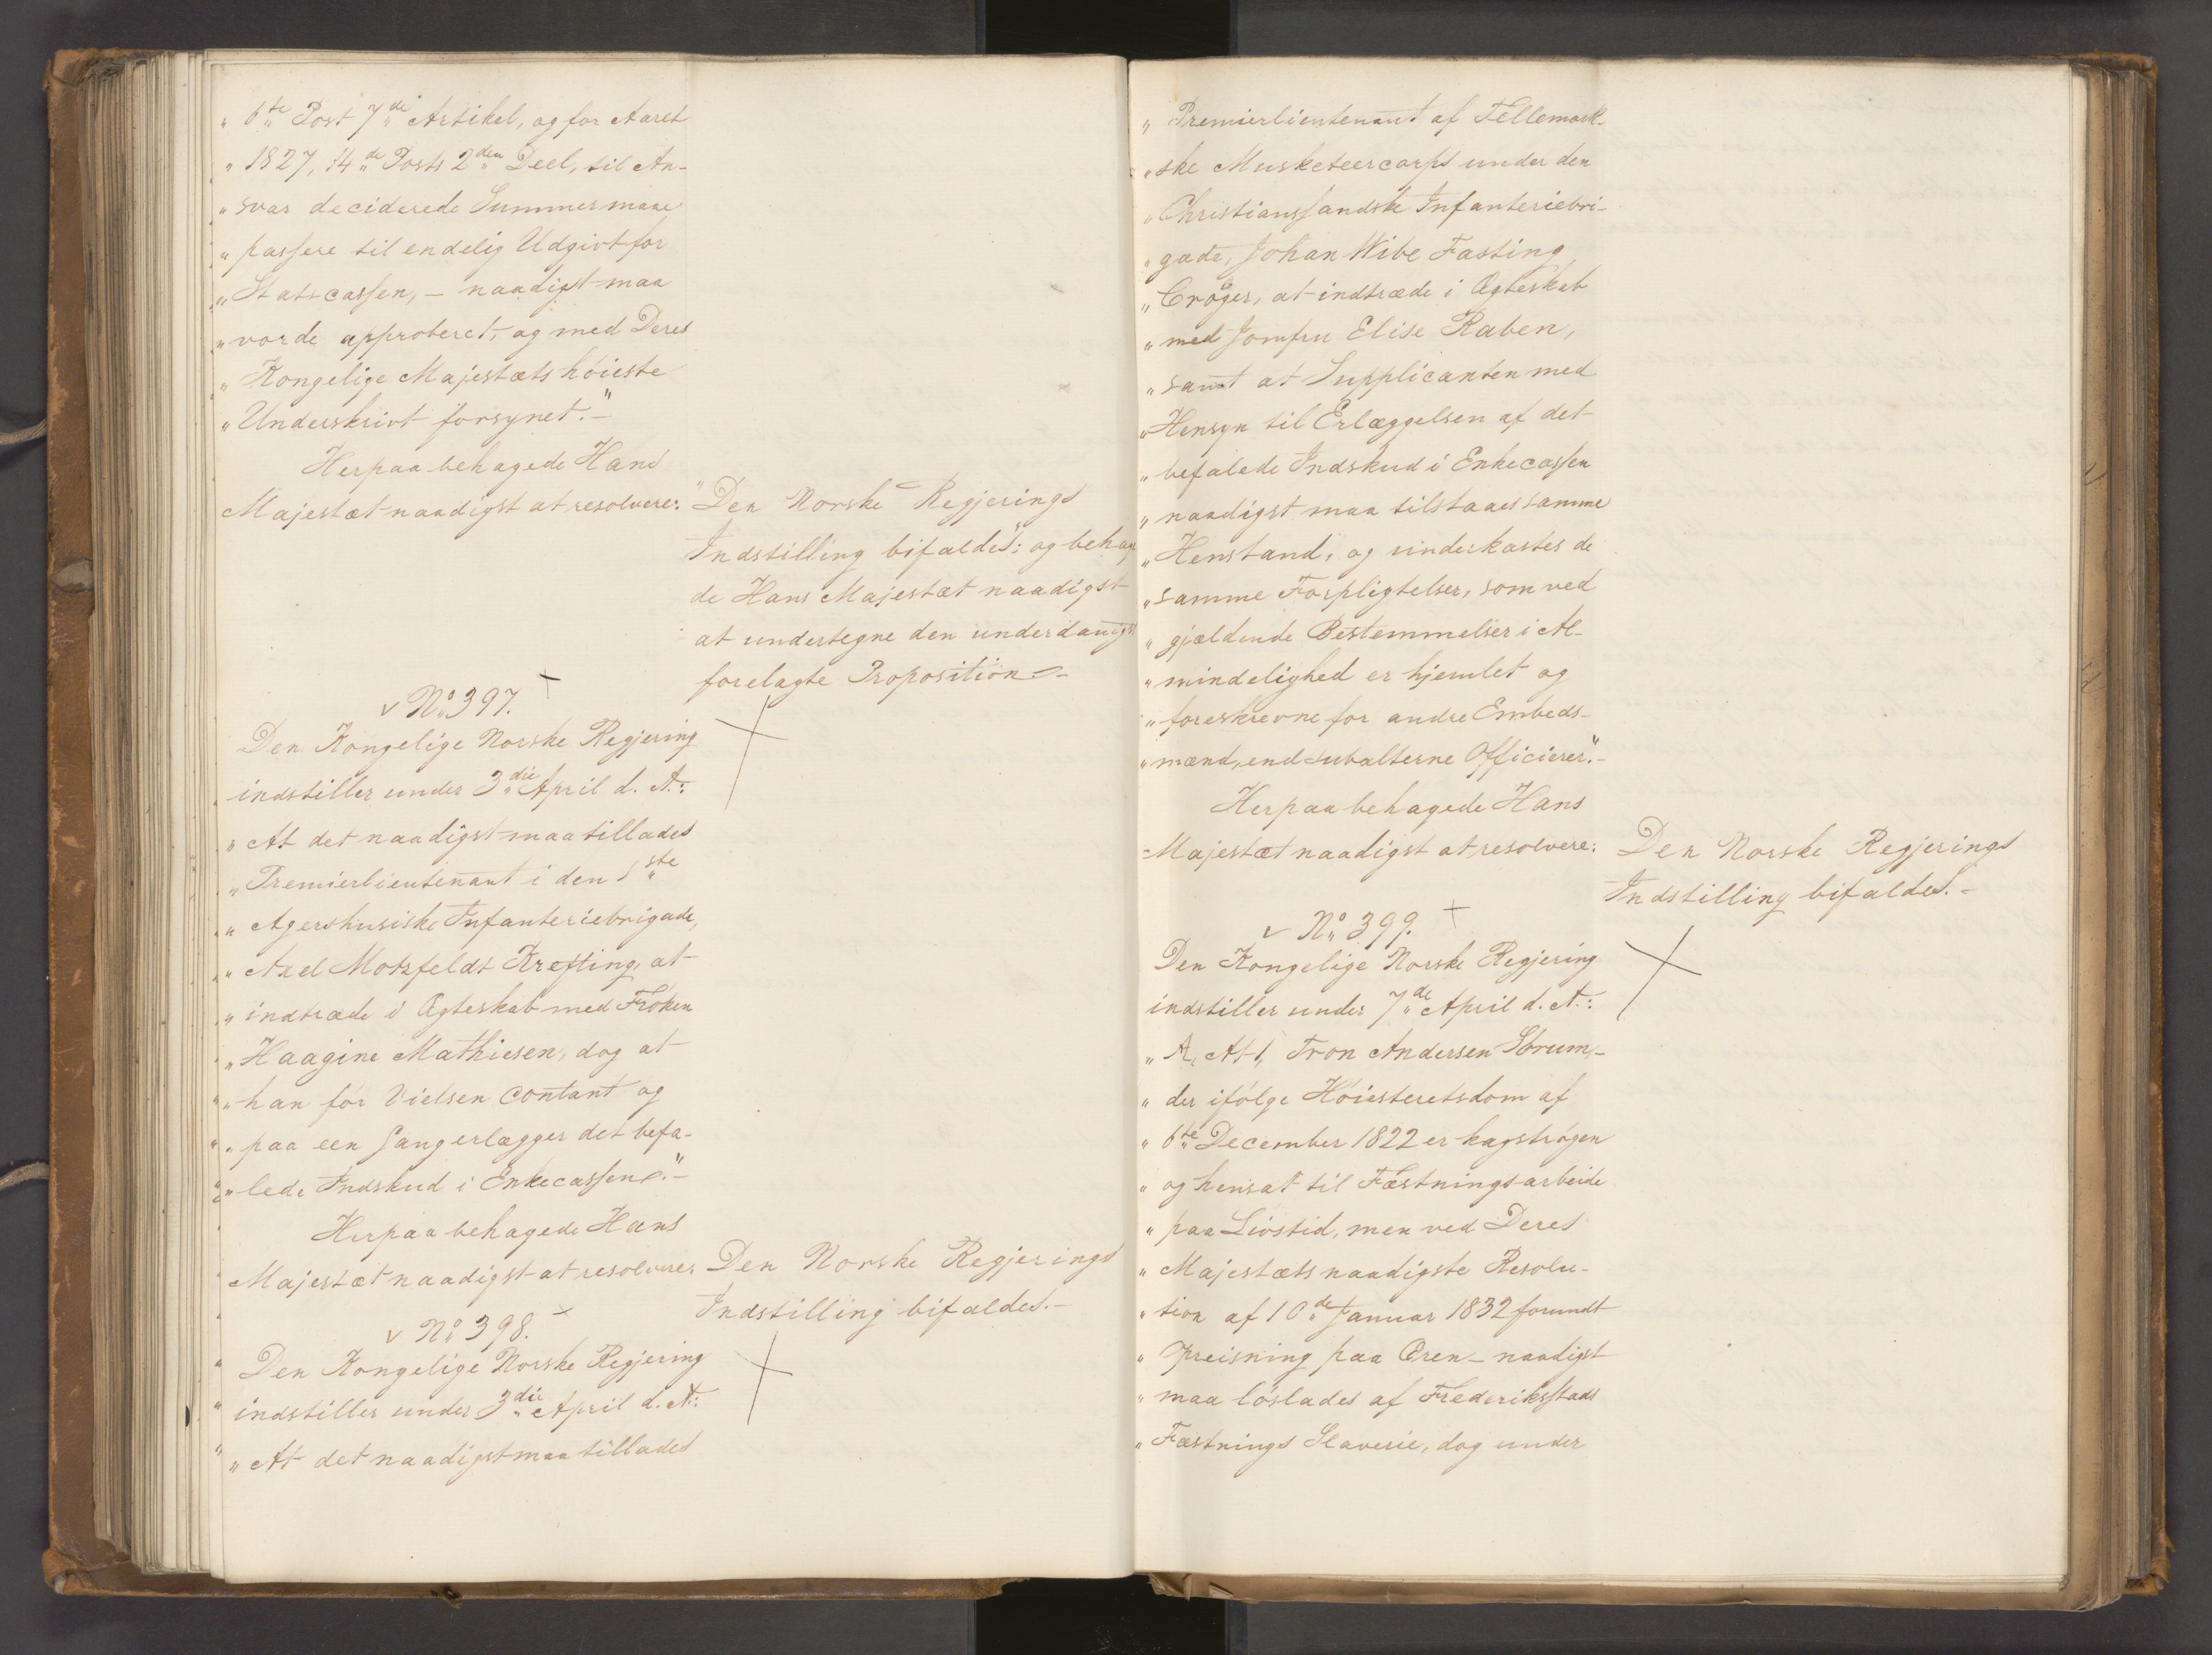 " 6te Post 7de Artikel, og for Aaret
" 1827, 14de Posts 2den Deel, til An-
" svar deciderede Summer maae
" passere til endelig Udgivt for
" Statscassen, - naadigst maa
" vorde approberet, og med Deres
" Kongelige Majestæts høieste
" Underskrivt forsynet." -
Herpaa behagede Hans
Majestæt naadigst at resolvere:
"Den Norske Regjerings
Indstilling bifaldes"; og behage
de Hans Majestæt naadigst
at undertegne den underdanigst
forelagte Proposition. -
v No 397. +
Den Kongelige Norske Regjering
indstiller under 3die April d. A.:
" At det naadigst maa tillades
" Premierlieutenant i den 1ste
" Agershusiske Infanteriebrigade,
" Axel Motzfeldt Krefting, at
" indtræde i Ægteskab med Frøken
" Haagine Mathiesen, dog at
" han før Vielsen contant og
" paa een Gang erlægger det befa-
" lede Indskud i Enkecassen." -
Herpaa behagede Hans
Majestæt naadigst at resolvere:
Den Norske Regjerings
Indstilling bifaldes. -
v No 398. +
Den Kongelige Norske Regjering
indstiller under 3die April d. A.:
" At det naadigst maa tillades
" Premierlieutenant af Tellemark-
" ske Musketeercorps under den
" Christianssandske Infanteriebri-
" gade, Johan Wibe Fasting
" Crøger, at indtræde i Ægteskab
" med Jomfru Elise Raben,
" samt at Supplicanten med
" Hensyn til Erlæggelsen af det
" befalede Indskud i Enkecassen
" naadigst maa tilstaaes samme
" Henstand, og underkastes de
" samme Forpligtelser, som ved
" gjældende Bestemmelser i Al-
" mindelighed er hjemlet og
" foreskrevne for andre Embeds-
" mænd, end subalterne Officierer." -
Herpaa behagede Hans
Majestæt naadigst at resolvere:
Den Norske Regjerings
Indstilling bifaldes. -
v No 399. +
Den Kongelige Norske Regjering
indstiller under 7de April d. A.:
" A, At 1, Tron Andersen Strum, -
" der ifølge Høiesteretsdom af
" 6te December 1822 er kagstrøgen
" og hensat til Fæstningsarbeide
" paa Livstid, men ved Deres
" Majestæts naadigste Resolu-
" tion af 10de Januar 1832 forundt
" Opreisning paa Æren - naadigst
" maa løslades af Frederiksstads
" Fæstnings Slaverie, dog under